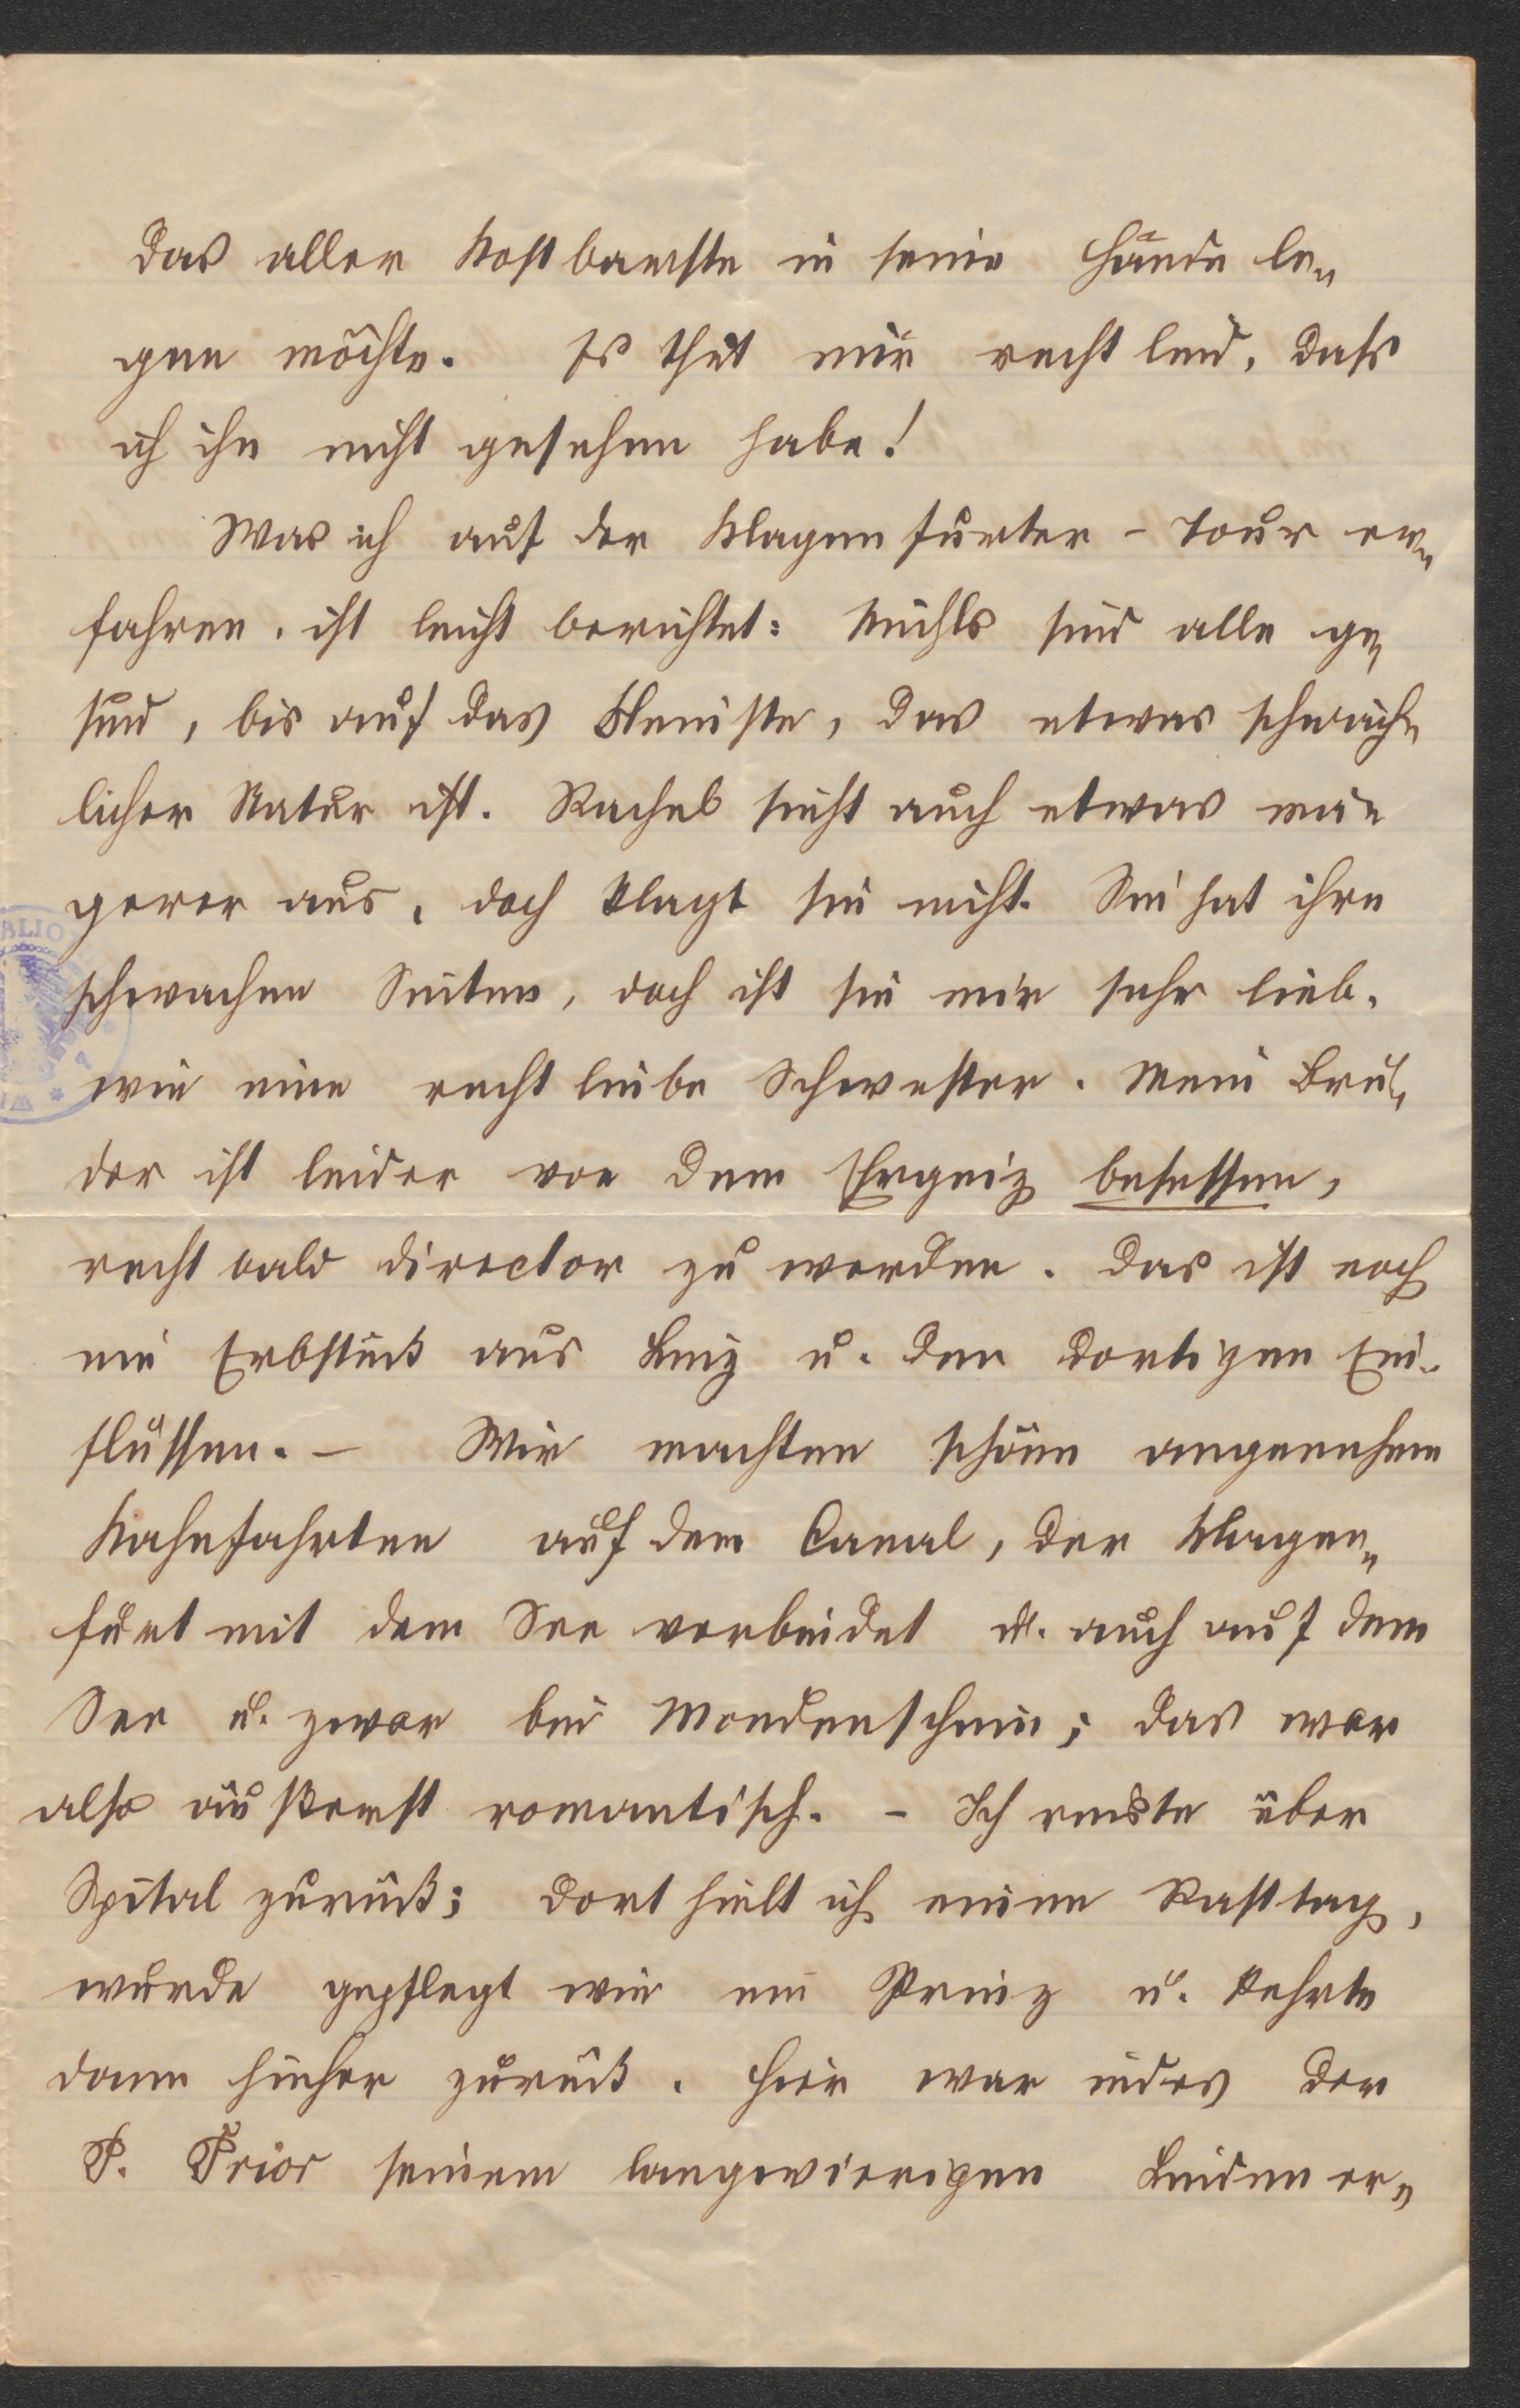 das aller Kostbarste in seine Hände le„
gen möchte. Es thut mir recht leid, dass
ich ihn nicht gesehen habe!
Was ich auf der Klagenfurter-Tour er„
fahren, ist leicht berichtet: Michls sind alle ge„
sund, bis auf das Kleinste, das etwas schwäch„
licher Natur ist. Rachel sieht auch etwas ma„
gerer aus, doch klagt sie nicht. Sie hat ihre
schwachen Seiten, doch ist sie mir sehr lieb,
wie eine recht liebe Schwester. Mein Bru„
der ist leider von dem Ehrgeiz besessen,
recht bald Director zu werden. Das ist noch
ein Erbstück aus Linz u. den dortigen Ein„
flüssen. – Wir machten schöne angenehme
Kahnfahrten auf dem Canal, der Klagen„
furt mit dem See verbindet u. auch auf dem
See u. zwar bei Mondenschein; das war
also äußerst romantisch. – Ich reiste über
Spital zurück; dort hielt ich einen Rasttag,
wurde gepflegt wie ein Prinz u. kehrte
dann hieher zurück. Hier war indes der
P. Prior seinem langwierigen Leiden er„
BLIO